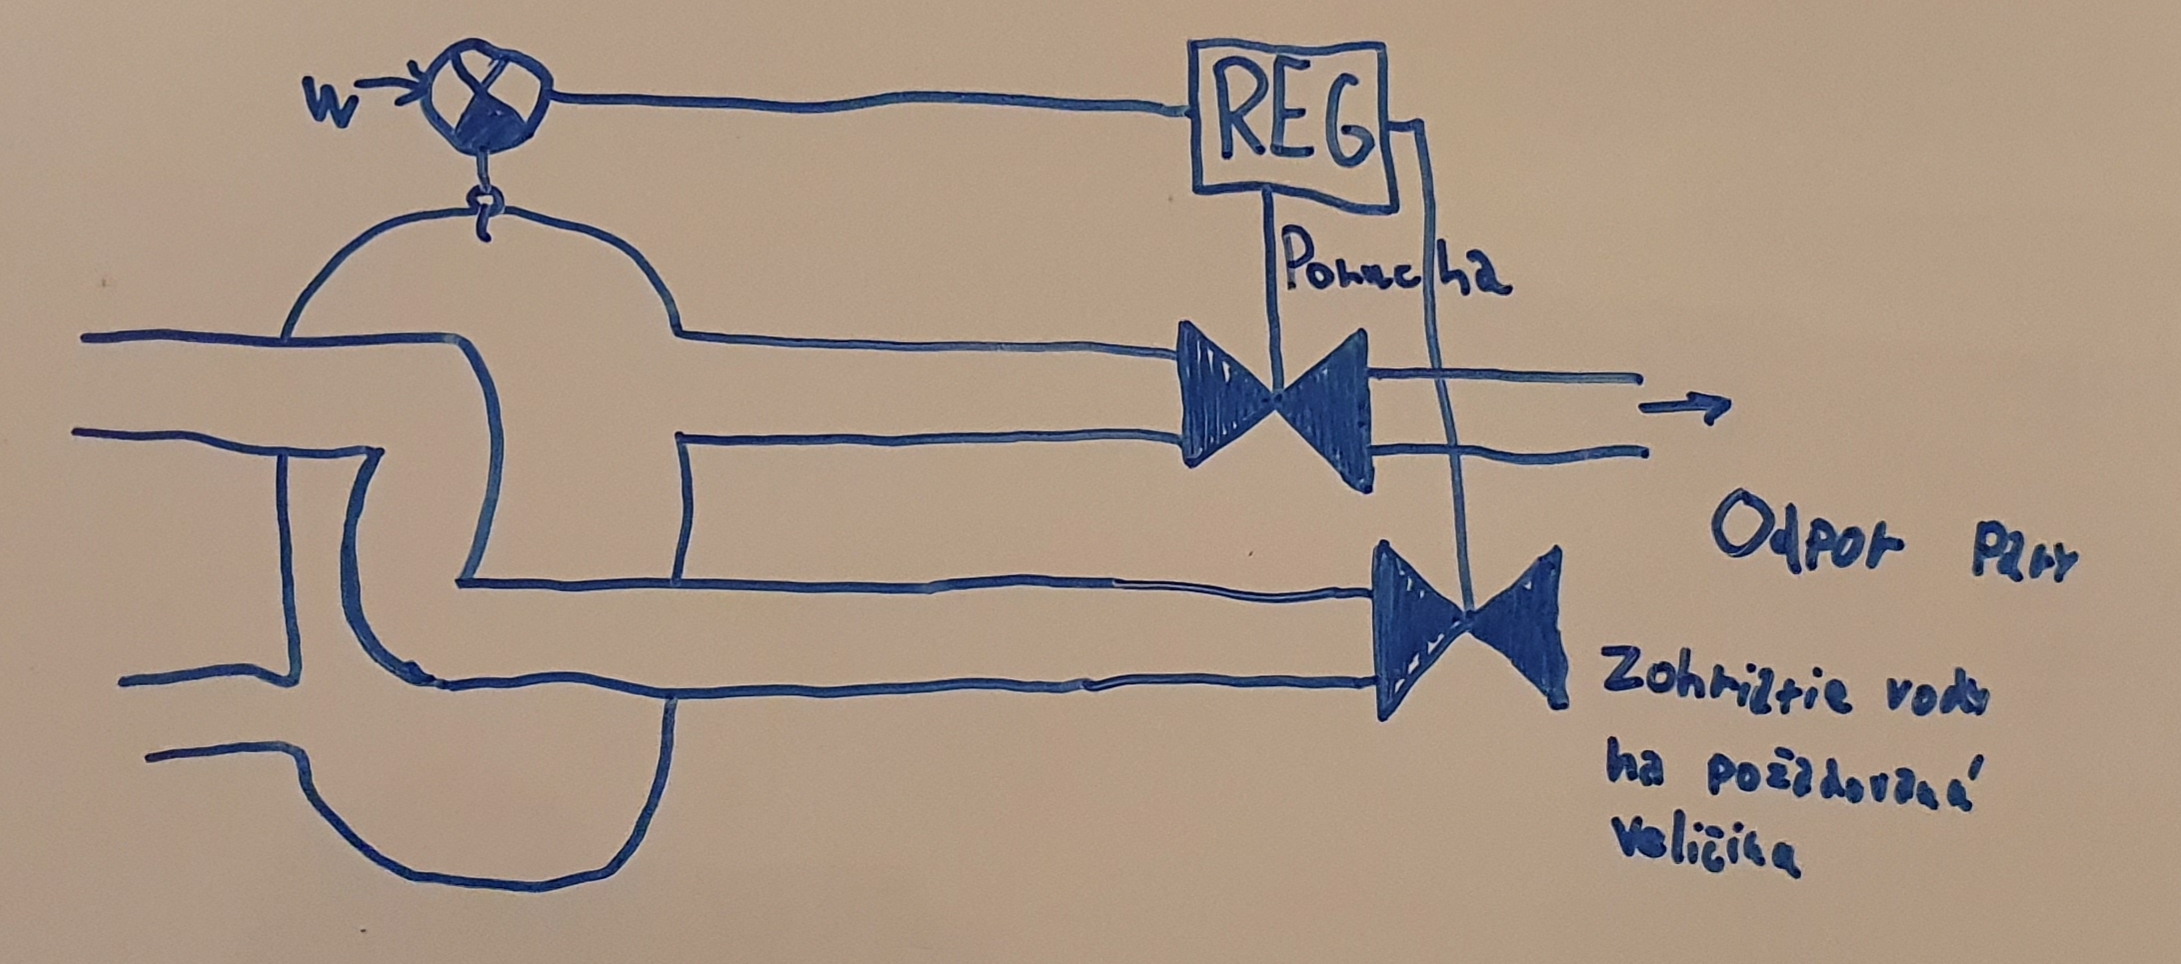 W
REG
Porucha
Odpor Pary
Zohriatie vody
na požadovaná
veličina